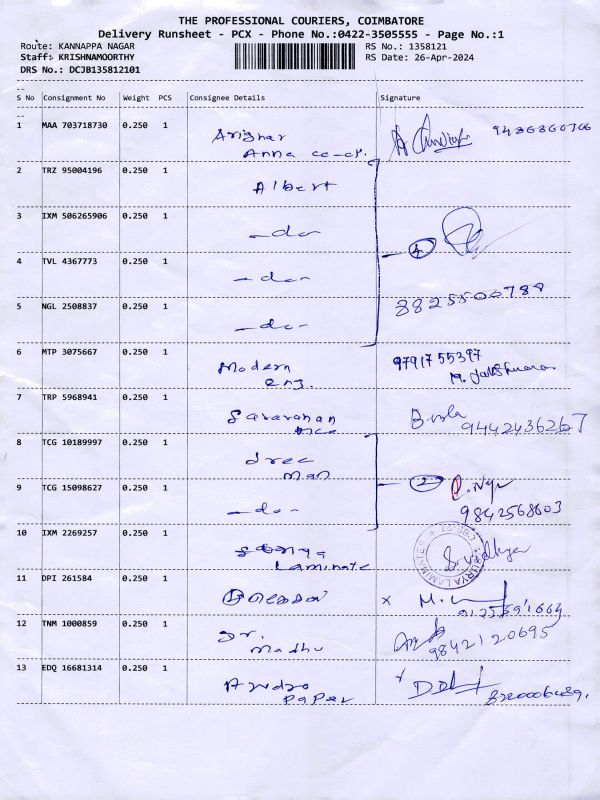 THE PROFESSIONAL COURIERS, COIMBATORE
Delivery Runsheet - PCX - Phone No.:0422-3505555 - Page No.:1
Route: KANNAPPA NAGAR
RS No.: 1358121
Staff: KRISHNAMOORTHY
RS Date: 26-Apr-2024
DRS No.: DCJB135812101
S No Consignment No Weight PCS Consignee Details Signature
1 MAA 703718730 0.250 1 Arignar
Anna co-op.
2 TRZ 95004196 0.250 1 Albert
3 IXM 506265906 0.250 1 -do-
4 TVL 4367773 0.250 1 -do- 4
5 NGL 2508837 0.250 1 -do- 8825500789
6 MTP 3075667 0.250 1 Modern 9791755397
eng.
7 TRP 5968941 0.250 1 Saravanan
9442436267
8 TCG 10189997 0.250 1
man 2
9 TCG 15098627 0.250 1 -do-
9842568603
10 IXM 2269257 0.250 1 S. Vidhya
Laminate
11 DPI 261584 0.250 1 x
12 TNM 1000859 0.250 1 Dr.
Madhu 9842120695
13 EDQ 16681314 0.250 1
Paper